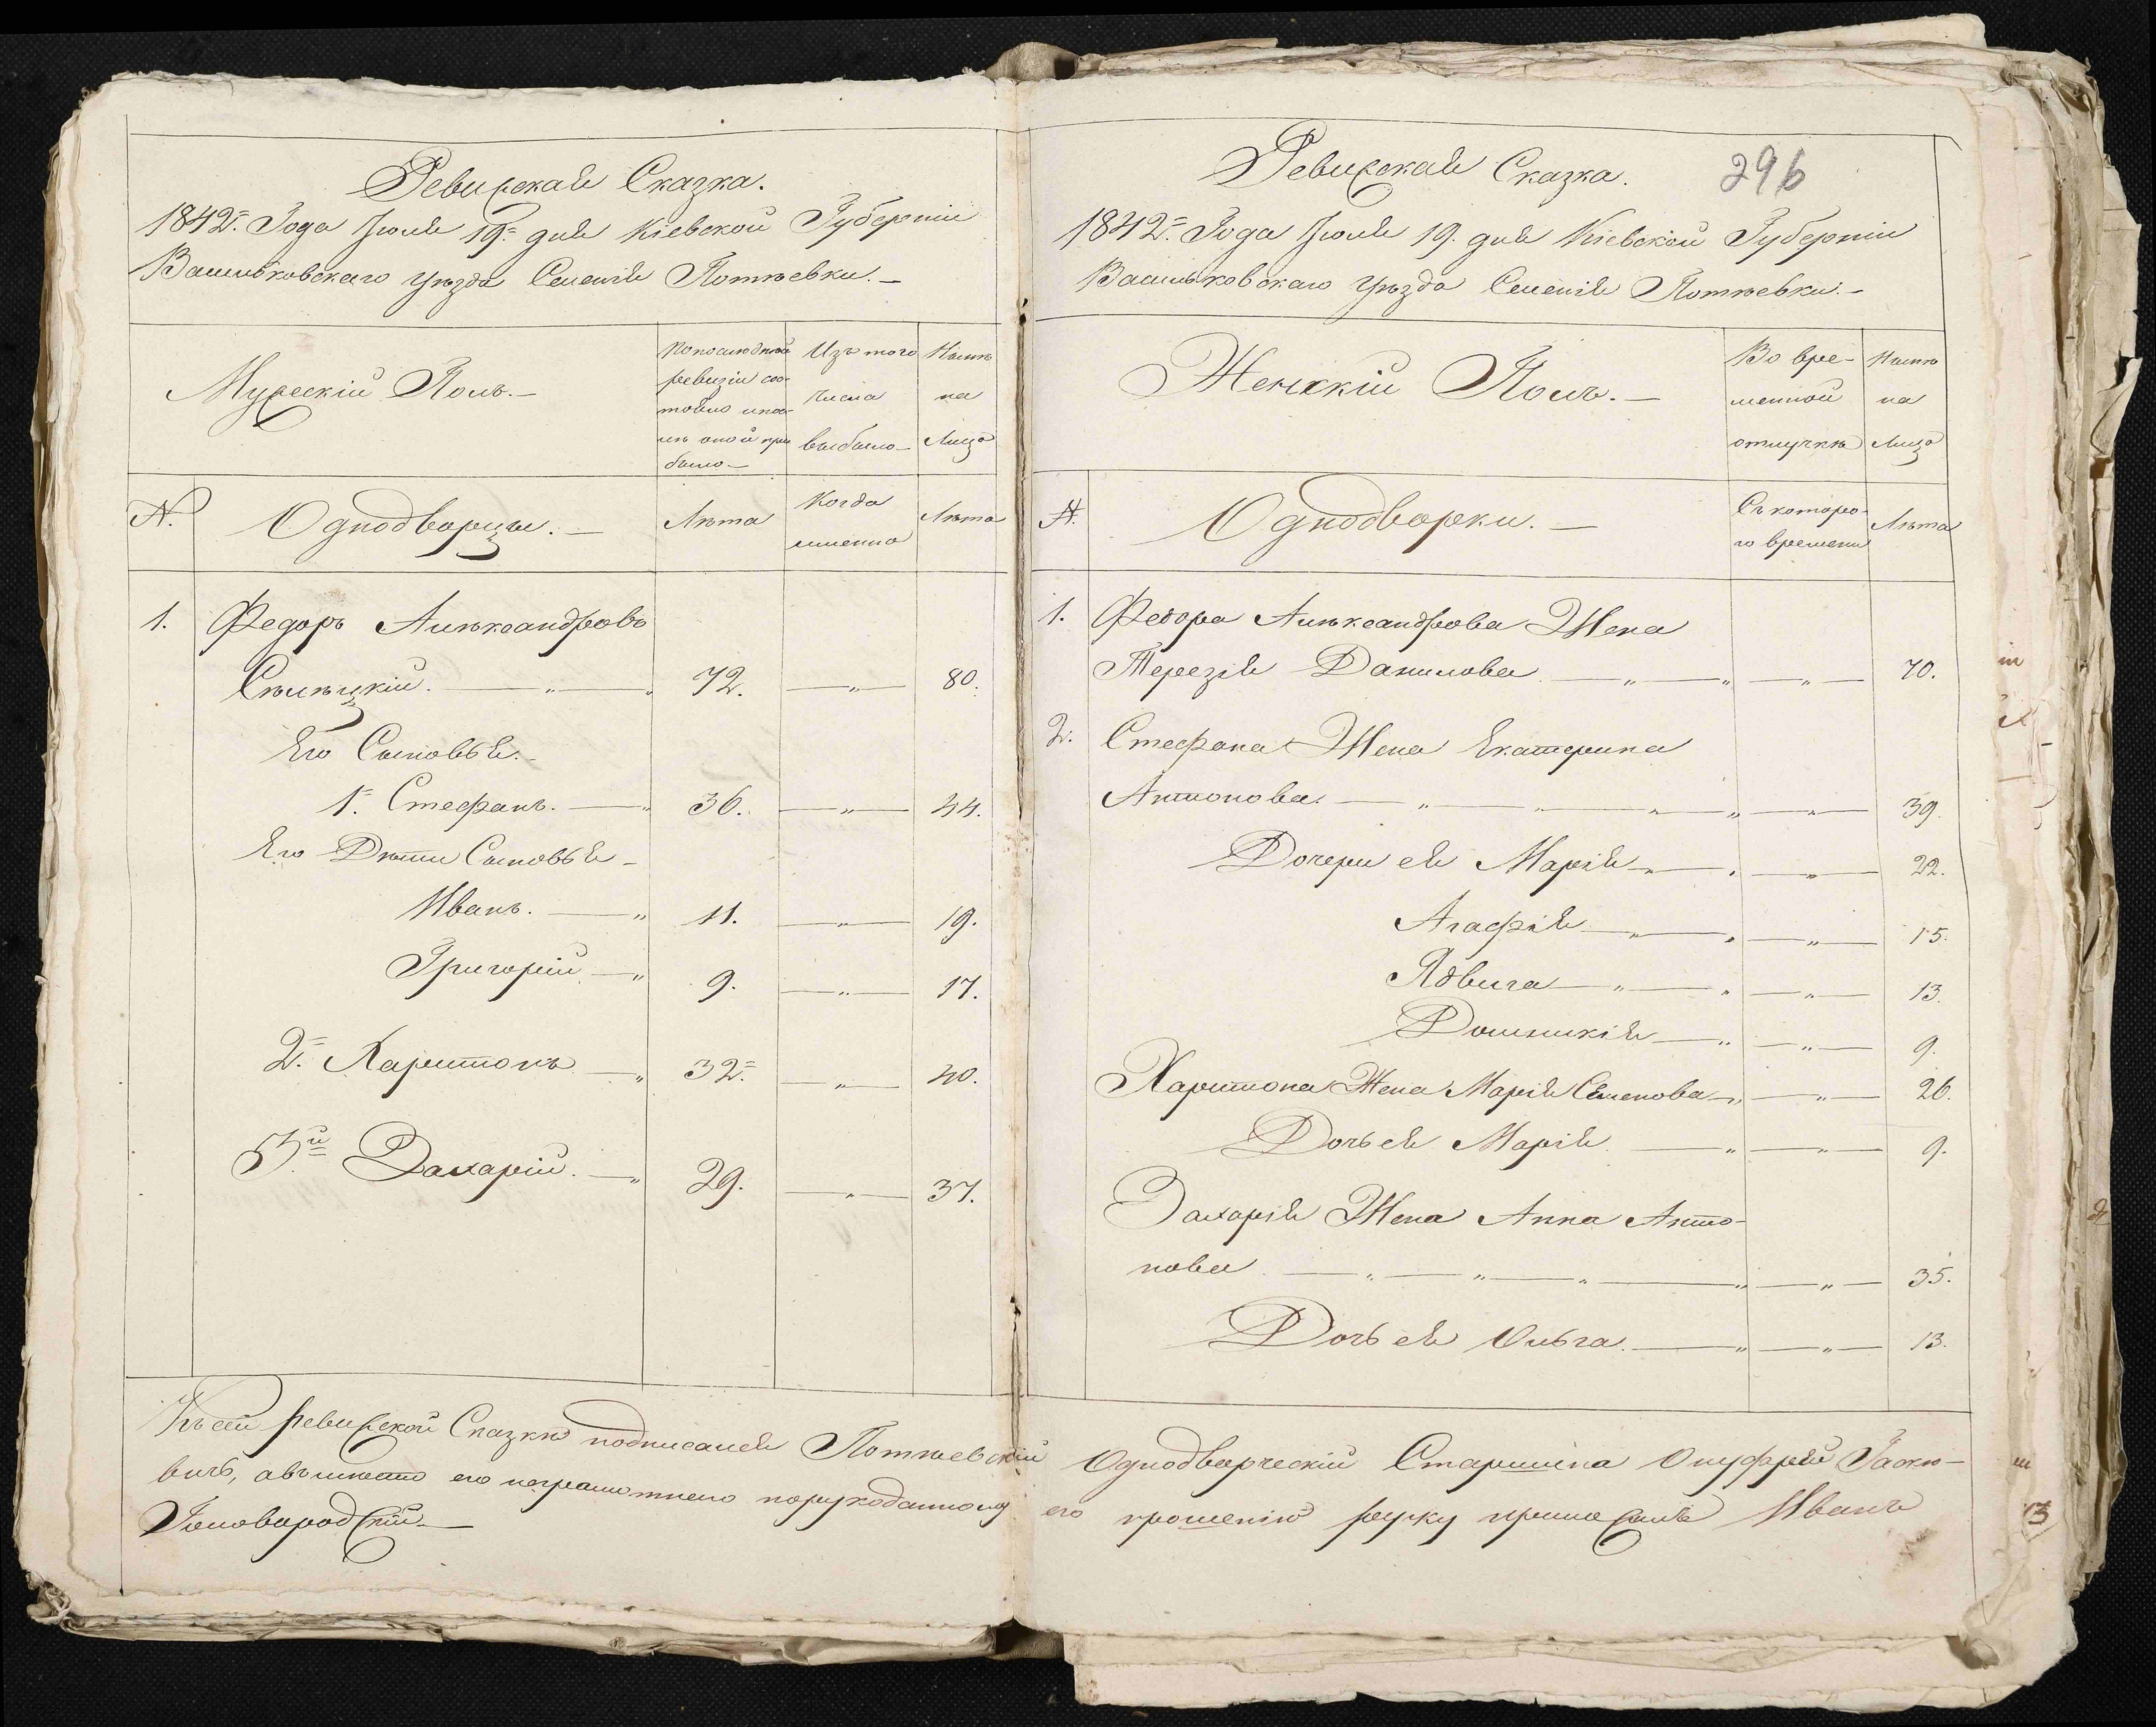 Ревизская Сказка.
1842=. Года Июля 19=. дня Кіевской Губерніи
Васильковскаго уѣзда Селенія Потіевки.—
Мужескій Полъ.—
Попослѣдней
ревизіи сос-
тояло ипос-
лѣ оной при
было—
Изъ того
числа
выбыло—
Нынѣ
на
Лицо
N.
Однодворцы.—
Лѣта
Когда
именно
Лѣта
1. Федоръ Алѣксандровъ
Сѣлѣцкій. — „ — „ 72. — „ — 80.
Его Сыновья.-
1=. Стефанъ. — „ 36. — „ — 44.
Его Дѣти Сыновья -
Иванъ. — „ 11. — „ — 19.
Григорій — „ 9. — „ — 17.
2=. Харитонъ — „ 32=. — „ — 40.
3й= Захарій. — „ 29. — „ — 37.
Ревизская Сказка. 296
1842=. Года Июля 19. дня Кіевской Губерніи
Васильковскаго уѣзда Селенія Потіевки.—
Женскій Полъ.—
Во вре-
менной
отлучкѣ
Нынѣ
на
Лицо
N.
Однодворки.—
Съ которо-
го времени
Лѣта
1. Федора Алѣксандрова Жена
Терезія Данилова — „ — „ — „ — 70.
2. Стефана Жена Екатерина
Антонова. — „ — „ — „ — „ — „ — 39.
Дочери ея Марія — „ — „ — „ — 22.
Агафія — „ — „ — „ — 15.
Ядвига — „ — „ — „ — 13.
Доминикія — „ — „ — 9.
Харитона Жена Марія Семенова — „ — „ — 26.
Дочь ея Марія. — „ — „ — 9.
Захарія Жена Анна Анто-
нова — „ — „ — „ — „ — „ — 35.
Дочь ея Ольга. — „ — „ — 13.
Къ сей ревизской Сказкѣ подписался Потіевскій Однодворческій Старшина Онуфрей
вичъ, авъмѣсто его неграмотнаго порукоданному его прошенію руку приложилъ Иванъ